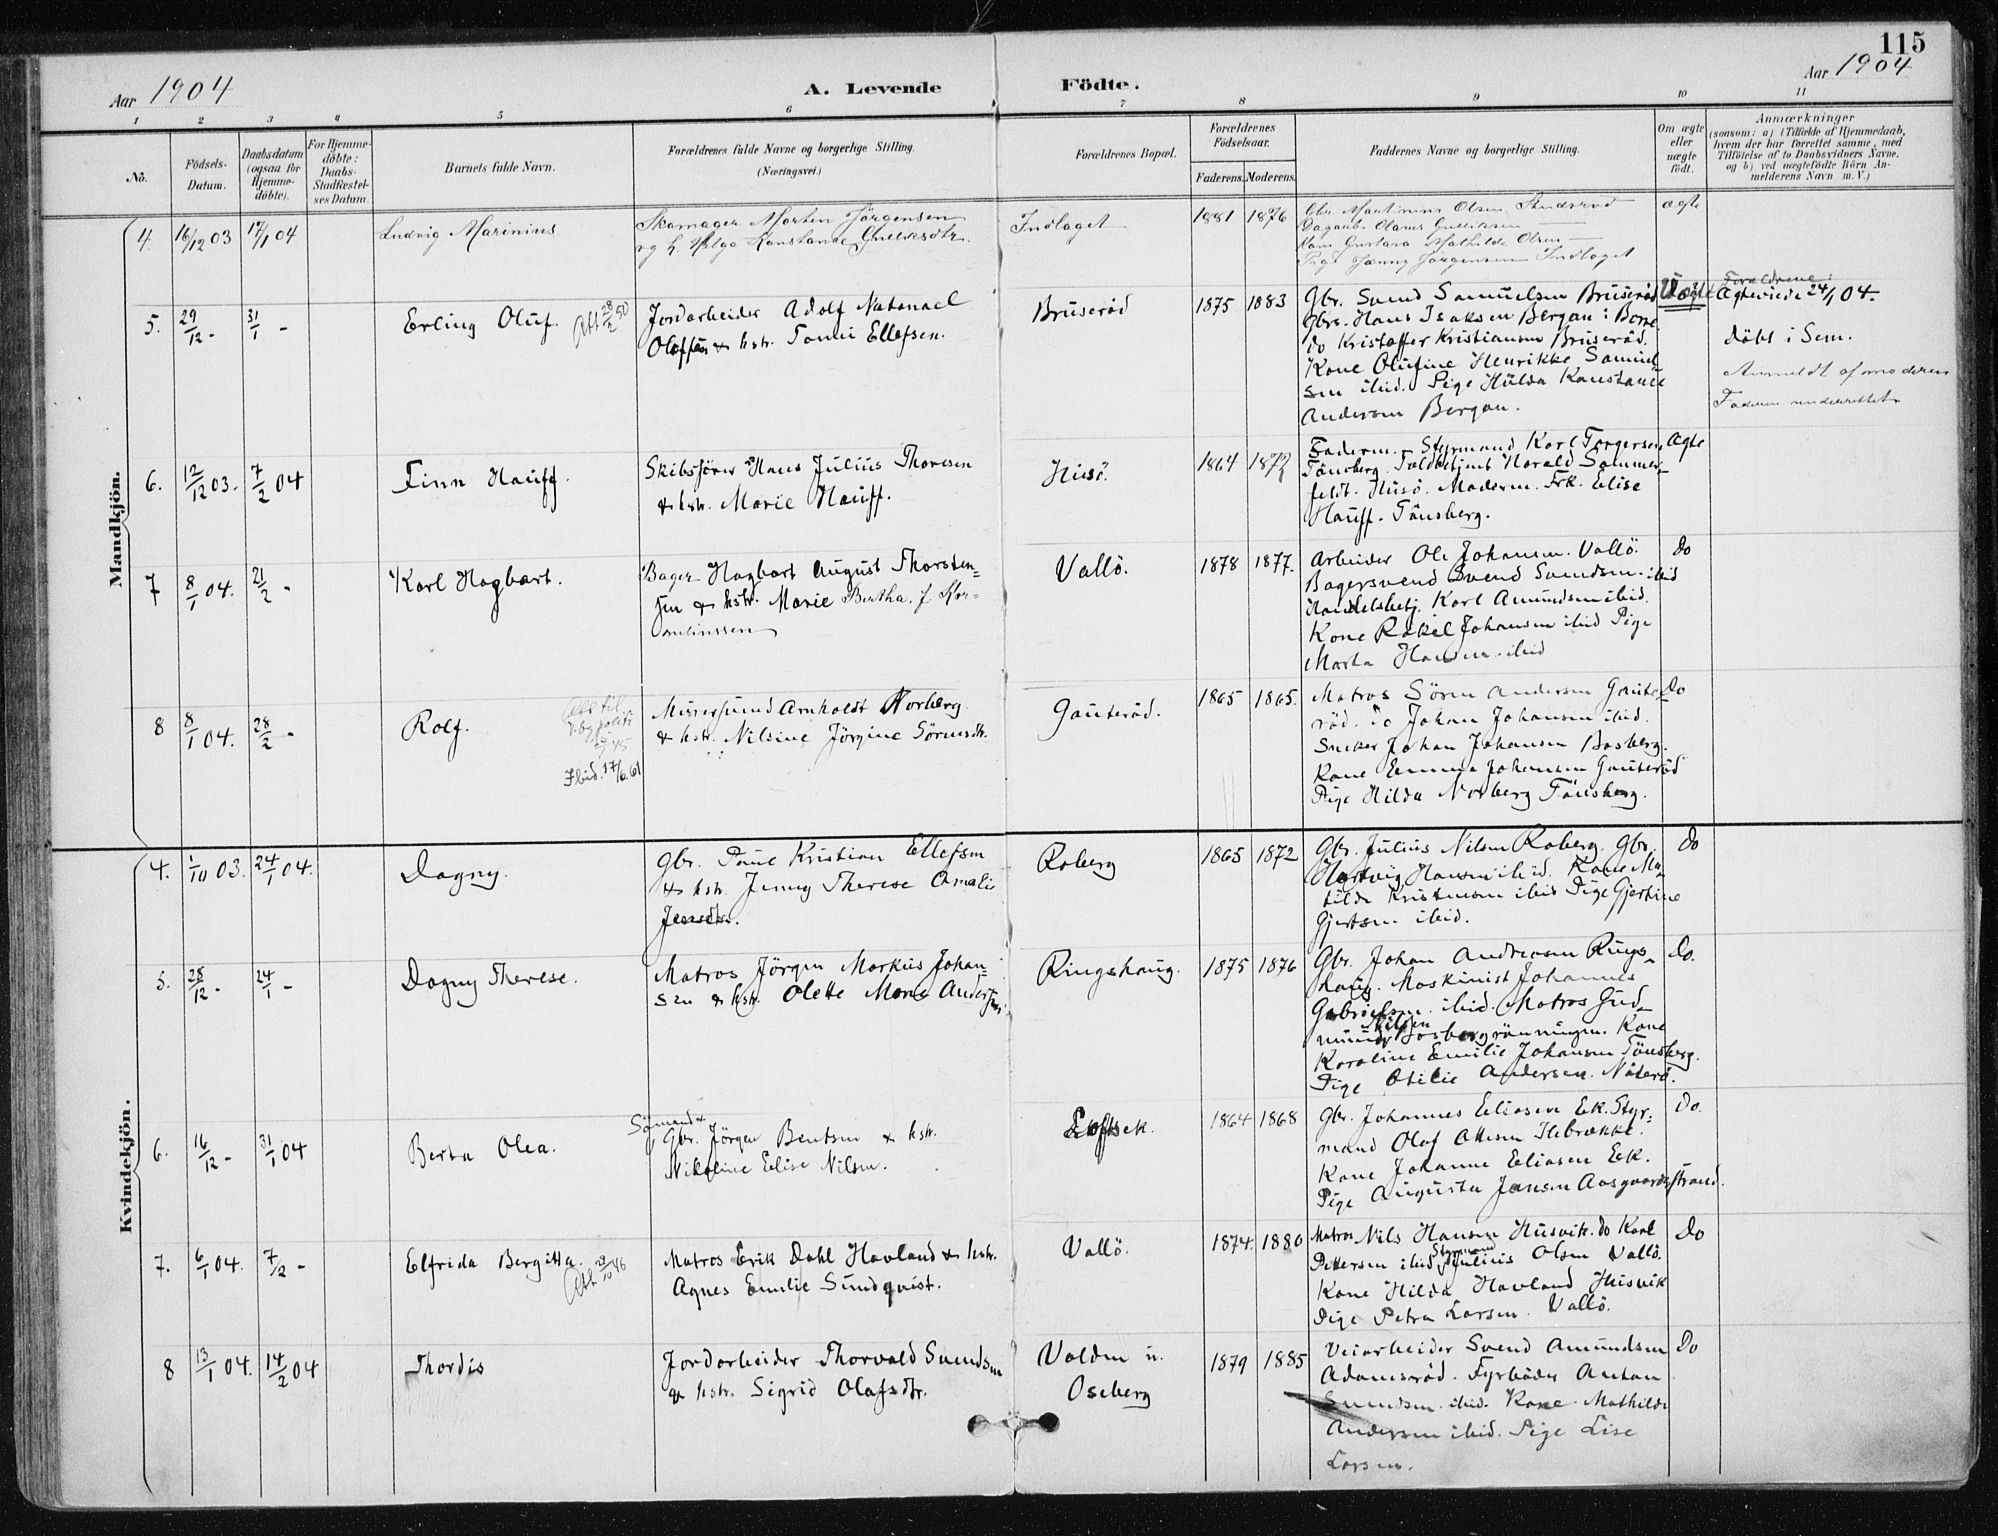 115
Aar 1904
A. Levende Födte.
Aar 1904
1 2 3 4 5 6 7 8 9 10 11
No.
Födsels-Datum.
Daabsdatum (ogsaa for Hjemme-döbte).
For Hjemme-döbte: Daabs-Stadfæstel-ses Datum.
Barnets fulde Navn.
Forældrenes fulde Navne og borgerlige Stilling.
(Næringsvei.)
Forældrenes Bopæl.
Forældrenes Födselsaar.
Faderens. Moderens.
Faddernes Navne og borgerlige Stilling.
Om ægte eller uægte födt.
Anmærkninger
(saasom: a) i Tilfælde af Hjemmedaab,
hvem der har forrettet samme, med
Tilföielse af to Daabsvidners Navne,
og b) ved uægtefödte Börn An-
melderens Navn m. V.)
Mandkjön.
4. 16/12 03 17/1 04
Ludvig Marinius
Skomager Morten Jörgensen
og h. Helga Konstance Gulliksdtr.
Indlaget
1881 1876
Gbr. Martinius Olsen
Olaves Gulliksen
Kone Gustava Mathilde Olsen
Pige Jenny Jörgensen Indlaget
ægte
5. 29/12 - 31/1 -
Erling Oluf. Att 28/2 50
Jordarbeider Adolf Natanael
Olafsen & hstr. Tomine Ellefsen.
Bruseröd
1875 1883
Gbr. Svend Samuelsen Bruseröd
Gbrs. Hans Isaksen Bergan i Borre
do Kristoffer Kristiansen Bruseröd.
Kone Olufine Henrikke Samuel
sen ibid. Pige Hulda Konstance
Andersen Bergan.
Uægte
Forældrene
Ægteviede 24/1 04.
döbt i Sem.
Anmeldt af moderen
Faderen underrettet
6. 12/12 03. 7/2 04
Finn Hauff.
Skibsförer Hans Julius Thoresen
& hstr. Marie Hauff.
Husö.
1864 1872
Faderen. Styrmand Karl Torgersen
Tönsberg. Toldbetjent Harald Sommer-
feldt. Husö. Moderen. Frk. Elise
Hauff. Tönsberg.
Ægte
7 8/1 04. 21/2 -
Karl Hagbart.
Bager Hagbart August Thorsten=
sen & hstr. Marie Bertha, f. Kor=
neliussen
Vallö.
1878 1877.
Arbeider Ole Johansen. Vallö.
Bagersvend Svend Svendsen. ibid
Handelsbetj. Karl Amundsen ibid.
Kone Rakel Johansen ibid Pige
Marta Hansen ibid
Do
8 8/1 04. 28/2 -
Rolf.
Ibid. 17/6.61
Arnholdt Norberg
& hstr. Nilsine Jörgine Sörensdtr.
Gauteröd.
1865 1865.
Matros Sören Andersen Gaute-
röd. Do Johan Johansen ibid.
Snekker Johan Johansen Basberg.
Kone Emma Johansen Gauteröd
Pige Hilda Norberg Tönsberg.
Do
Kvindekjön.
4. 1/10 03. 24/1 04.
Dagny.
Gbr. Paul Kristian Ellefsen
& hstr. Jenny Therese Amalie
Jensdtr.
Roberg
1865 1872
Gbr. Julius Nilsen Roberg. Gbr.
Hartvig Hansen ibid. Kone Ma-
tilde Kristensen ibid Pige Gjertine
Gjertsen ibid.
Do
5. 28/12 - 24/1 -
Dagny Therese.
Matros Jörgen Markus Johan=
sen & hstr. Olette Marie Andersen
Ringshaug.
1875 1876
Gbr. Johan Andreasen Rings-
haug. Maskinist Johannes
Gabrielsen ibid. Matros Gud-
mund Nilsen Basbergrönningen. Kone
Karoline Emilie Johansen Tönsberg.
Pige Otilie Andersen. Nöterö.
Do.
6. 16/12 - 31/1 04
Berta Olea.
Sömand &
Gbr. Jörgen Bentsen & hstr.
Nikoline Elise Nilsen.
1864 1868
Gbr. Johannes Eliasen Ek. Styr=
mand Olaf Ottesen Ilebrække.
Kone Johanne Eliasen Eek.
Pige Augusta Jensen Aasgaardsstrand.
Do.
7. 6/1 04. 7/2 -
Elfrida Bergitta. Att 2/10 46
Matros Erik Dahl Havland & hstr.
Agnes Emilie Sundqvist.
Vallö.
1874. 1880
Matros Nils Hansen Husvik. do Karl
Pettersen ibid. Styrmand Julius Olsen Vallö.
Kone Hilda Havland Husvik
Pige Petra Larsen. Vallö.
Do
8 13/1 04. 14/2 04
Thordis
Jordarbeider Thorvald Svendsen
& hstr. Sigrid Olafsdtr.
Volden u.
Oseberg
1879 1885
Veiarbeider Svend Amundsen
Adamsröd. Fyrböder Anton
Svendsen ibid. Kone Mathilde
Andersen ibid. Pige Lise
Larsen.
Do